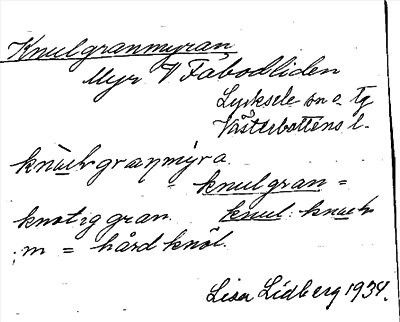 Knulgranmyran
Myr V Fäbodliden
Lycksele sn o. tg
Västerbottens l.
granmýra.
knulgran =
knotig gran. knul:
m = hård knöl.
Lisa Lidberg 1934.